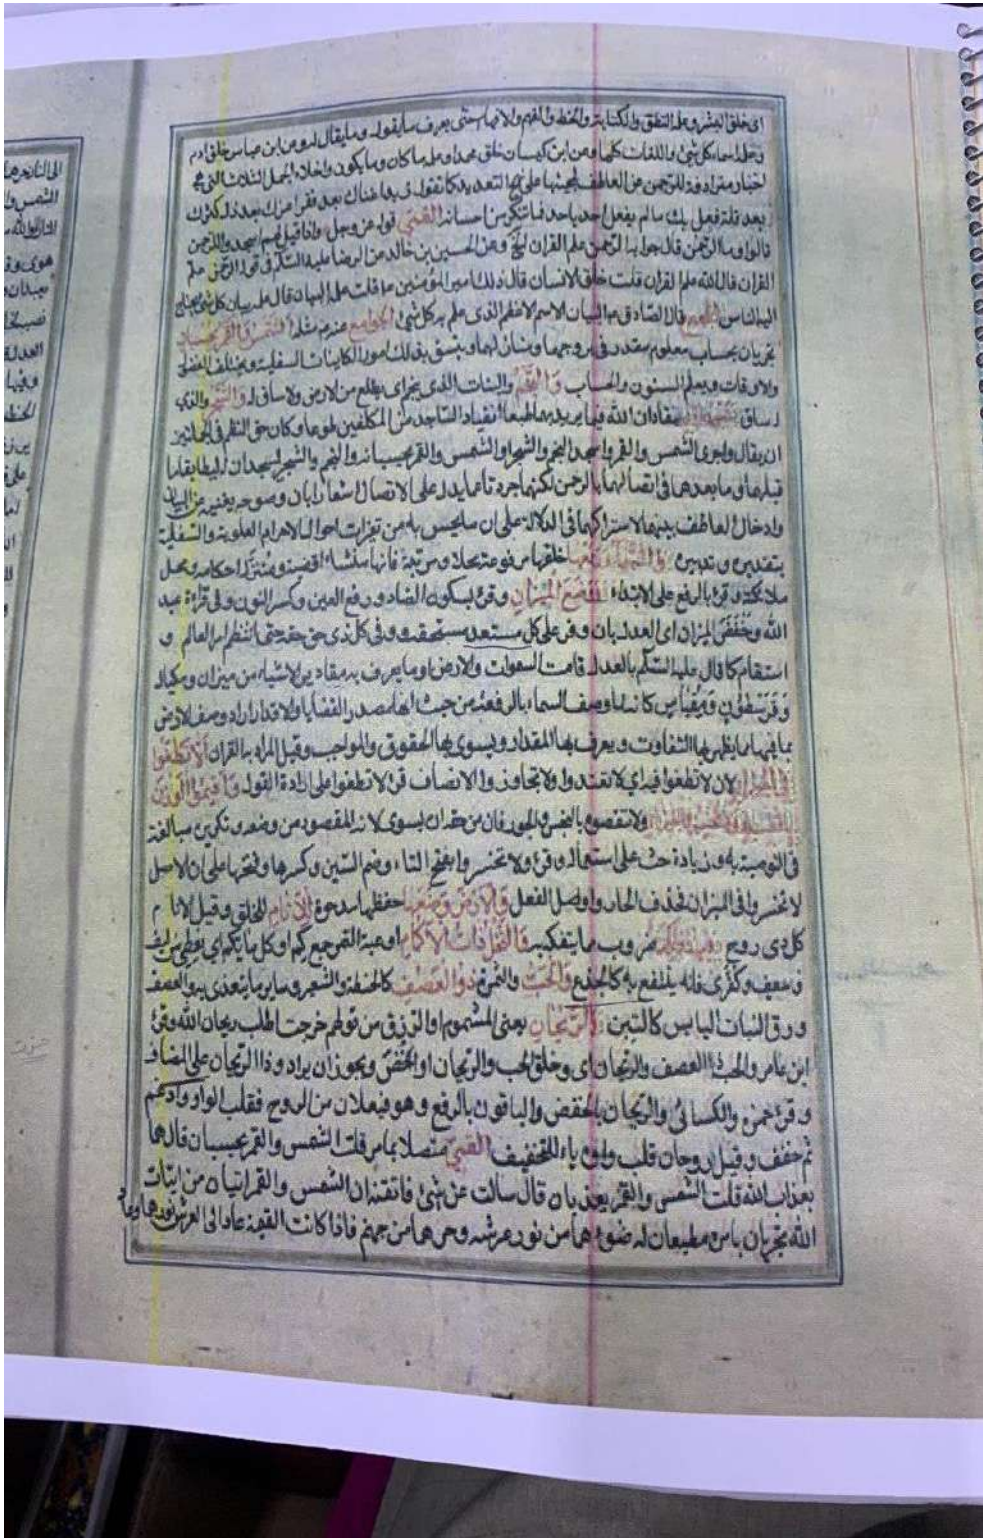 اى خلق البشر وعلم النطق والكتابة والخط والفهم والافهام حتى يعرف ما يقول وما يقال له وعن ابن عباس خلق ادم
وعلمه اسماء كل شئ واللغات كلها وعن ابن كيسان خلق محمدا وعلمه ما كان وما يكون واخلاء الجمل الثلاث التى هى
اخبار مترادفة للرحمن عن العاطف لمجيئها على نهج التعديد كما تقول زيد اغناك بعد فقر اعزك بعد ذل كثرك
بعد قلة فعل بك ما لم يفعل احد باحد فما تنكر من احسانه القمي قوله عز وجل واذا قيل لهم اسجدوا للرحمن
قالوا وما الرحمن قال جوابه الرحمن علم القران الخ وعن الحسين بن خالد عن الرضا عليه السلام فى قوله الرحمن علم
القران قال الله علم القران قلت خلق الانسان قال ذلك امير المؤمنين ع قلت علمه البيان قال علمه بيان كل شئ يحتاج
اليه الناس المجمع قال الصادق ع البيان الاسم الاعظم الذى علم به كل شئ الجوامع عنه ع مثله الشمس والقمر بحسبان
يجريان بحساب معلوم مقدر فى بروجهما ومنازلهما ويتسق بذلك امور الكاينات السفلية ويختلف الفصول
والاوقات ويعلم السنون والحساب والنجم والنبات الذى ينجم اى يطلع من الارض ولا ساق له والشجر والذى
له ساق يسجدان ينقادان الله فيما يريد بهما طبعا انقياد الساجد من المكلفين طوعا وكان حق النظم فى الجملتين
ان يقال واجرى الشمس والقمر واسجد النجم والشجر او الشمس والقمر بحسبانه والنجم والشجر يسجدان له ليطابقا ما
قبلهما وما بعدهما فى اتصالهما بالرحمن لكنهما جردتا عما يدل على الاتصال اشعارا بان وضوحه يغنيه عن البيان
وادخال العاطف بينهما لاشتراكهما فى الدلالة على ان ما يحس به من تغيرات احوال الاجرام العلوية والسفلية
بتقديره وتدبيره والسماء رفعها خلقها مرفوعة محلا ومرتبة فانها منشاء اقضيته ومتنزل احكامه ومحل
ملائكته وقرئ بالرفع على الابتداء ووضع الميزان وقرئ بسكون الضاد ورفع العين وكسر النون وفى قراءة عبد
الله وخفض الميزان اى العدل بان وفر على كل مستعد مستحقه ووفى كل ذى حق حقه حتى انتظم امر العالم و
استقام كما قال عليه السلام بالعدل قامت السموات والارض او ما يعرف به مقادير الاشياء من ميزان ومكيال
وقرسطون ومقياس كانه لما وصف السماء بالرفعة من حيث انها مصدر القضايا والاقدار اراد وصف الارض
بما فيها مما يظهر بها التفاوت ويعرف بها المقدار ويسوى بها الحقوق والمواجب وقيل المراد به القران ألا تطغوا
فى الميزان لان لا تطغوا فيه اى لا تعتدوا ولا تجاوزوا الانصاف قرئ لا تطغوا على ارادة القول وأقيموا الوزن
بالقسط ولا تخسروا الميزان ولا تنقصوه بالبخس والجور فان من حقه ان يسوى لانه المقصود من وضعه وتكريره مبالغة
فى التوصية به وزيادة حث على استعماله وقرئ ولا تخسروا بفتح التاء وضم السين وكسرها وفتحها على ان الاصل
لا تخسروا فى الميزان فحذف الجار واوصل الفعل والارض وضعها خفضها مدحوة للانام للخلق وقيل الانام
كل ذى روح فيها فاكهة ضروب مما يتفكه به والنخل ذات الاكمام اوعية التمر جمع كم او كل ما يكم اى يغطى من ليف
وسعف وكفرى فانه ينتفع به كالجذع والحب والتمرة ذو العصف كالحنطة والشعير وساير ما يتغذى به والعصف
ورق النبات اليابس كالتبن والريحان يعنى المشموم او الرزق من قولهم خرجت اطلب ريحان الله وقرئ
ابن عامر والحب ذا العصف والريحان اى وخلق الحب والريحان او اخص ويجوز ان يراد وذا الريحان على المضاف
وقرئ حمزة والكسائى والريحان بالخفض والباقون بالرفع وهو فيعلان من الروح فقلب الواو وادغم
ثم خفف وقيل روحان قلب واوه ياء للتخفيف القمي متصلا بما مر قلت الشمس والقمر بحسبان قال هما
بعذاب الله قلت الشمس والقمر يعذبان قال سالت عن شئ فاتقنه ان الشمس والقمر ايتان من ايات
الله يجريان بامره مطيعان له ضوءهما من نور عرشه وحرهما من جهنم فاذا كانت القيمة عاد الى العرش نورهما وعاد